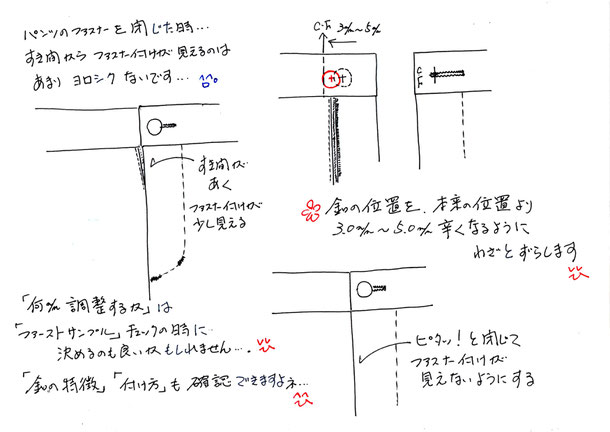 パンツのファスナーを閉じた時…
すき間からファスナー付けが見えるのは
あまりヨロシクないです…
すき間が
あく
ファスナー付けが
少し見える
C.F
3㎜～5㎜
C
F
釦の位置を、本来の位置より
3.0㎜～5.0㎜辛くなるように
わざとずらします
「何㎜調整するか」は
「ファーストサンプル」チェックの時に
決めるのも良いかもしれません…。
「釦の特徴」「付け方」も確認できますよネ…
ピタッ！と閉じて
ファスナー付けが
見えないようにする